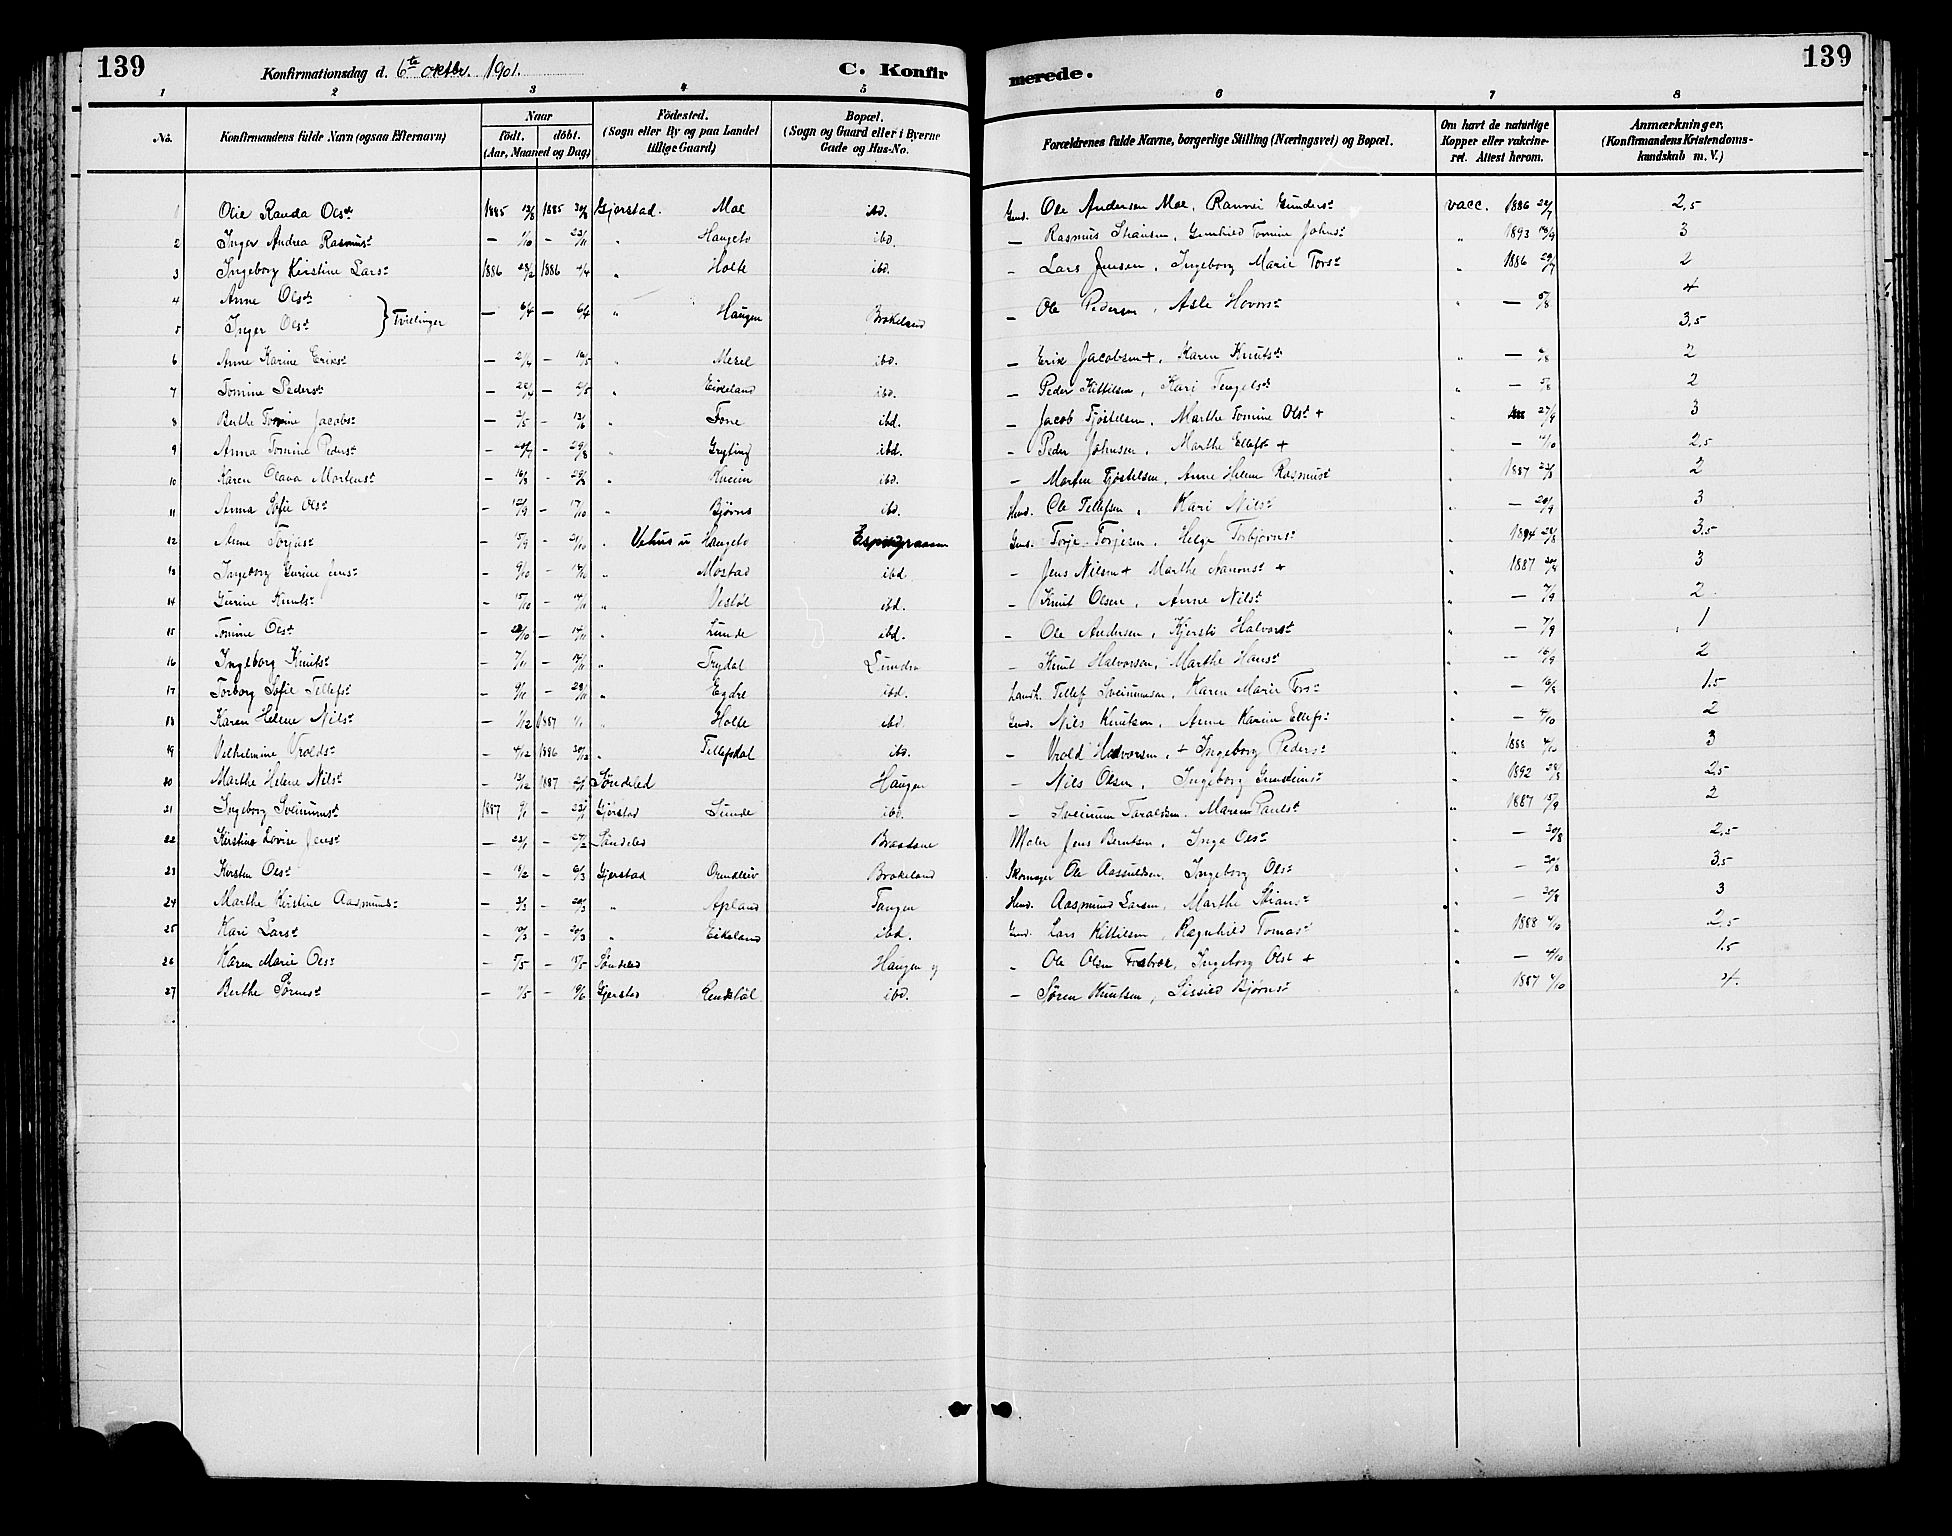 139 Konfirmationsdag d. 6te oktbr. 1901. C. Konfirmerede. 139
1 2 3 4 5 6 7 8
No. Konfirmandens fulde Navn (ogsaa Efternavn) Naar født. døbt. (Aar, Maaned og Dag) Fødested. (Sogn eller By og paa Landet tillige Gaard) Bopæl. (Sogn og Gaard eller i Byerne Gade og Hus-No. Forældrenes fulde Navne, borgerlige Stilling (Næringsvei) og Bopæl. Om havt de naturlige Kopper eller vakcineret. Attest herom. Anmærkninger. (Konfirmandens Kristendomskundskab m. V.)
1 Olie Randa Olsdt 1885 13/8 1885 30/8 Gjerstad. Moe ibd. Gmd. Ole Andersen Moe, Rannei Gundersdt vacc. 1886 29/7 2,5
2 Inger Andrea Rasmusdt — 1/10 — 22/11 " Haugeto ibd. — Rasmus Stiansen, Gunhild Tomine Johnsdt " 1893 13/9 3
3 Ingeborg Kirstine Larsdt 1886 28/2 1886 4/4 " Holte ibd. — Lars Jensen, Ingeborg Marie Torsdt " 1886 29/7 2
4 Anne Olsdt } Tvillinger — 6/4 — 6/4 " Haugen Brokeland — Ole Pedersen, Asle Hovorsdt " — 5/8 4
5 Inger Olsdt 3,5
6 Anne Karine Eriksdt — 2/4 — 16/5 " Mesel ibd. — Erik Jacobsen +, Karen Knutsdt " — 5/8 2
7 Tomine Pedersdt — 22/4 — 2/5 " Eikeland ibd. — Peder Kittilsen, Kari Tengelsdt " — 5/8 2
8 Berthe Tomine Jacobsdt — 2/5 — 13/6 " Fone ibd. — Jacob Fjøstelsen, Marthe Tomine Olsdt + " 27/9 3
9 Anna Tomine Pedersdt — 20/7 — 29/8 " Gryting ibd. — Peder Johnsen, Marthe Ellefsdt + " — 4/10 2,5
10 Karen Olava Mortensdt — 16/8 — 29/8 " ibd. — Morten Fjøstelsen, Anne Helene Rasmusdt " 1887 23/8 2
11 Anna Sofie Olsdt — 12/9 — 17/10 " Bjørvo ibd. Husd. Ole Tellefsen, Kari Nilsdt " — 20/9 3
12 Anne Torjusdt — 15/9 — 21/10 " Vehus u Haugeto Gmd. Torje Torjesen, Helge Torbjørnsdt " 1894 28/8 3.5
13 Ingeborg Gurine Jensdt — 9/10 — 14/11 " Mostad ibd. — Jens Nilsen + Marthe Aanonsdt + " 1887 20/9 3
14 Gurine Knutsdt — 15/10 — 14/11 " Vestøl ibd. — Knut Olsen, Anne Nilsdt " — 7/9 2
15 Tomine Olsdt — 22/10 — 14/11 " Lunde ibd. — Ole Andersen, Kjersti Halvorsdt " — 7/9 1
16 Ingeborg Knutsdt — 7/11 — 14/11 " Trydal Sunden — Knut Halvorsen, Marthe Hansdt " — 16/9 2
17 Torborg Sofie Tellefsdt — 9/11 — 29/11 " Egdre ibd. Lensm. Tellef Sveinumsen, Karen Marie Torsdt " — 16/8 1.5
18 Karen Helene Nilsdt — 1/12 1887 1/1 " Holte ibd. Gmd. Nils Knutsen, Anne Karine Ellefsdt " — 4/10 2
19 Vilhelmine Vroldsdt — 4/12 1886 30/12 " Tellefsdal ibd. — Vrold Halvorsen, + Ingeborg Pedersdt " 1888 4/10 3
20 Marthe Helene Nilsdt — 13/12 1887 2/1 Søndeled Haugen — Nils Olsen, Ingeborg Gunsteinsdt " 1892 28/8 2,5
21 Ingeborg Sveinumsdt 1887 9/1 — 23/1 Gjerstad Sunde ibd. — Sveinum Taraldsen, Maren Paulsdt " 1887 15/9 2
22 Kirstine Lovise Jensdt — 23/1 — 27/2 Søndeled Braatane Maler Jens Berntsen, Inga Olsdt " — 30/8 2,5
23 Kirsten Olsdt — 18/2 — 6/3 Gjerstad Ormdleiv Brokeland Skomager Ole Aasuldsen, Ingeborg Olsdt " — 20/8 3.5
24 Marthe Kirstine Aasmundsdt — 3/3 — 20/3 " Apland Tangen Husd. Aasmund Larsen, Marthe Stiansdt " — 20/8 3
25 Kari Larsdt — 10/3 — 20/3 " Eikeland ibd. Gmd. Lars Kittilsen, Ragnhild Tomasdt " 1888 4/10 2,5
26 Karen Marie Olsdt — 5/5 — 15/5 Søndeled Haugen y — Ole Olsen, Ingeborg Olsdt + " — 4/10 1.5
27 Berthe Sørensdt — 1/5 — 19/6 Gjerstad Rendstøl ibd. — Søren Knutsen, Sissied Bjørnsdt " 1887 4/10 4.